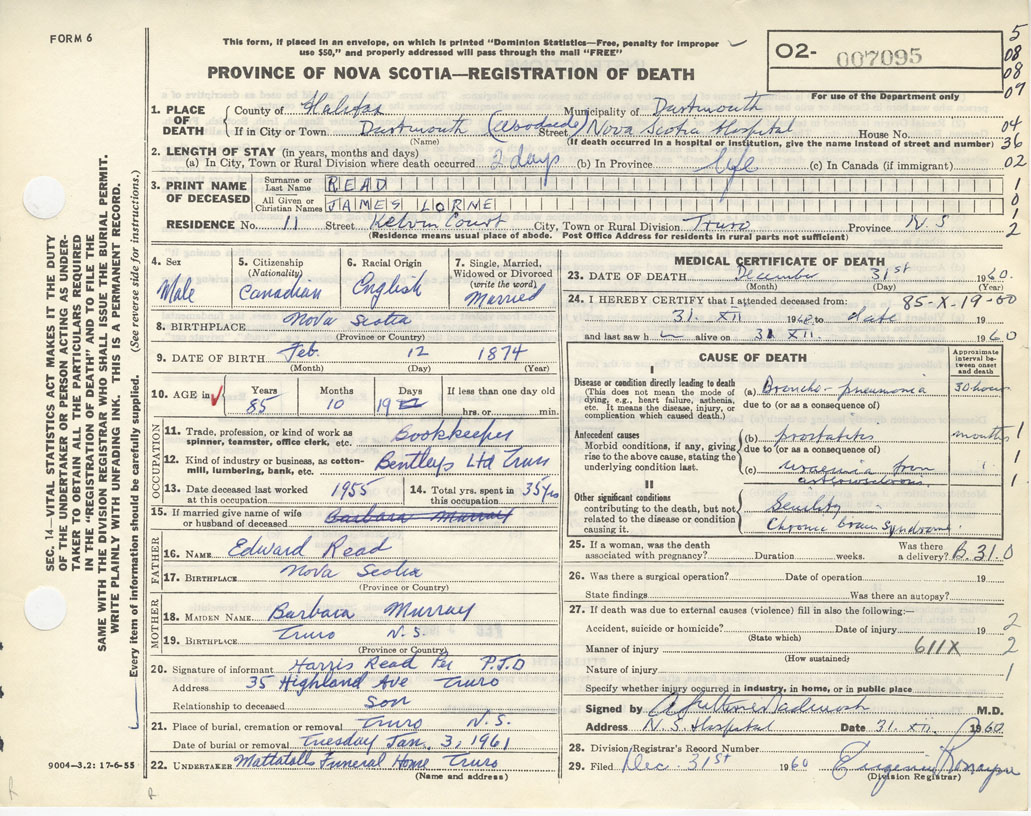 FORM 6
This form, if placed in an envelope, on which is printed "Dominion Statistics—Free, penalty for improper
use $50," and properly addressed will pass through the mail "FREE"
PROVINCE OF NOVA SCOTIA—REGISTRATION OF DEATH
O2- 007095
For use of the Department only
5
08
08
09
04
36
02
1
0
1
2
SEC. 14—VITAL STATISTICS ACT MAKES IT THE DUTY
OF THE UNDERTAKER OR PERSON ACTING AS UNDER-
TAKER TO OBTAIN ALL THE PARTICULARS REQUIRED
IN THE "REGISTRATION OF DEATH" AND TO FILE THE
SAME WITH THE DIVISION REGISTRAR WHO SHALL ISSUE THE BURIAL PERMIT.
WRITE PLAINLY WITH UNFADING INK. THIS IS A PERMANENT RECORD.
Every item of information should be carefully supplied. (See reverse side for instructions.)
1. PLACE OF DEATH County of Halifax Municipality of Dartmouth
If in City or Town Dartmouth (Woodside) Street Nova Scotia Hospital House No.
(Name) (If death occurred in a hospital or institution, give the name instead of street and number)
2. LENGTH OF STAY (in years, months and days)
(a) In City, Town or Rural Division where death occurred 2 days (b) In Province life (c) In Canada (if immigrant)
3. PRINT NAME OF DECEASED Surname or Last Name READ
All Given or Christian Names JAMES LORNE
RESIDENCE No. 11 Street Kelvin Court City, Town or Rural Division Truro Province N.S
(Residence means usual place of abode. Post Office Address for residents in rural parts not sufficient)
4. Sex Male
5. Citizenship (Nationality) Canadian
6. Racial Origin English
7. Single, Married, Widowed or Divorced (write the word) Married
8. BIRTHPLACE Nova Scotia
(Province or Country)
9. DATE OF BIRTH Feb. 12 1874
(Month) (Day) (Year)
10. AGE in Years 85 Months 10 Days 19 If less than one day old hrs. or min.
OCCUPATION
11. Trade, profession, or kind of work as
spinner, teamster, office clerk, etc. Bookkeeper
12. Kind of industry or business, as cotton-
mill, lumbering, bank, etc. Bentleys Ltd Truro
13. Date deceased last worked at this occupation 1955
14. Total yrs. spent in this occupation 35 yrs
15. If married give name of wife
or husband of deceased Barbara Murray
FATHER
16. NAME Edward Read
17. BIRTHPLACE Nova Scotia
(Province or Country)
MOTHER
18. MAIDEN NAME Barbara Murray
19. BIRTHPLACE Truro N.S.
(Province or Country)
20. Signature of informant Harris Read Per P.J.D
Address 35 Highland Ave Truro
Relationship to deceased son
21. Place of burial, cremation or removal Truro N.S.
Date of burial or removal Tuesday Jan. 3, 1961
22. UNDERTAKER Mattatalls Funeral Home Truro
(Name and address)
9004-3.2: 17-6-55
R
R
MEDICAL CERTIFICATE OF DEATH
23. DATE OF DEATH December 31st 1960.
(Month) (Day) (Year)
24. I HEREBY CERTIFY that I attended deceased from: 85-X-19-00
31. XII 19 to date 19
and last saw h alive on 31 XII. 1960
CAUSE OF DEATH
Approximate interval between onset and death
I
Disease or condition directly leading to death
(This does not mean the mode of
dying, e.g., heart failure, asthenia,
etc. It means the disease, injury, or
complication which caused death.)
(a) Broncho-pneumonia 30 hours
due to (or as a consequence of)
Antecedent causes
Morbid conditions, if any, giving
rise to the above cause, stating the
underlying condition last.
(b) prostatitis months 1
due to (or as a consequence of) 1
(c) uraemia from 1
II
Other significant conditions
contributing to the death, but not
related to the disease or condition
causing it.
Senility
Chronic brain syndrome
25. If a woman, was the death
associated with pregnancy? Duration weeks. Was there a delivery? B.31.0
26. Was there a surgical operation? Date of operation 19
State findings Was there an autopsy?
27. If death was due to external causes (violence) fill in also the following:—
Accident, suicide or homicide? Date of injury 19 2
(State which)
Manner of injury 611X 2
(How sustained)
Nature of injury 1
Specify whether injury occurred in industry, in home, or in public place
Signed by M.D.
Address N.S. Hospital Date 31. XII. 1960
28. Division Registrar's Record Number
29. Filed Dec. 31st 1960
(Division Registrar)